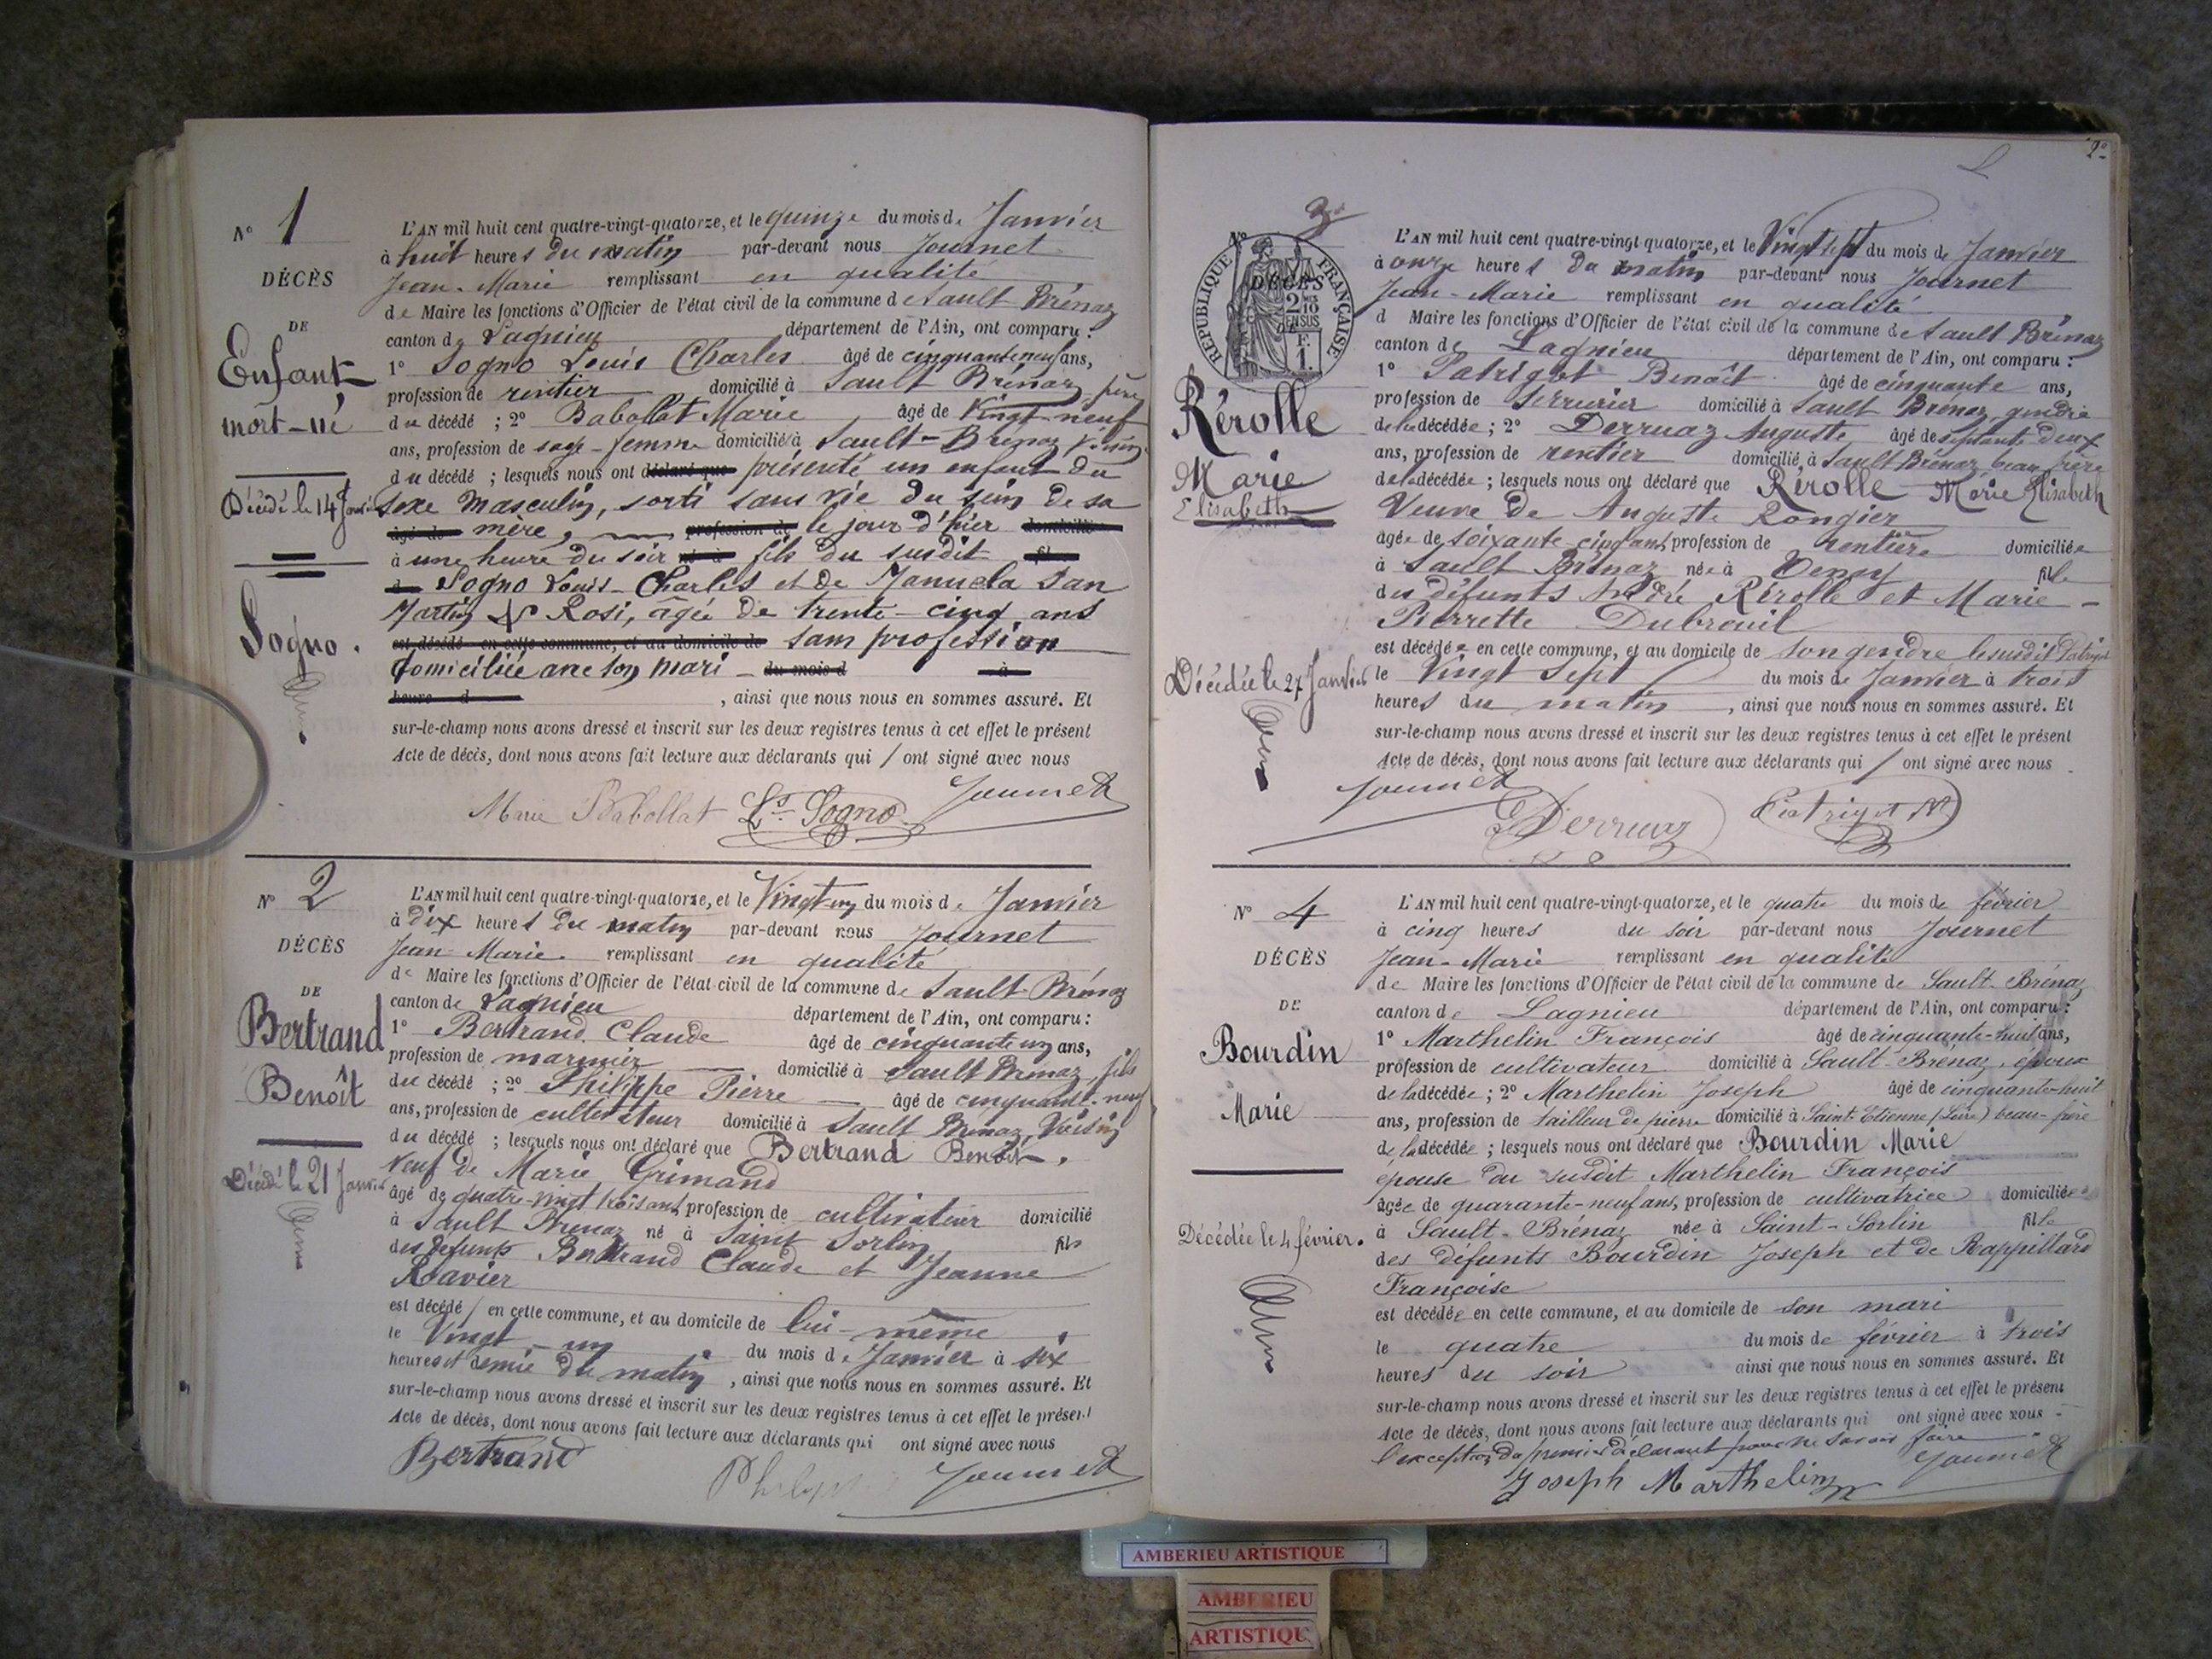 N° 1
DÉCÈS
DE
Enfant
mort-né
Décédé le 14 Janvier
Sogno.
L'AN mil huit cent quatre-vingt-quatorze, et le quinze du mois de Janvier
à huit heures du matin par-devant nous Journet
Jean-Marie remplissant en qualité
de Maire les fonctions d'Officier de l'état civil de la commune de Sault Brénaz
canton de Lagnieu département de l'Ain, ont comparu :
1° Sogno Louis Charles âgé de cinquante neuf ans,
profession de rentier domicilié à Sault Brénaz, père
du décédé ; 2° Babollat Marie âgé de Vingt-neuf
ans, profession de sage-femme domicilié à Sault-Brénaz
du décédé ; lesquels nous ont déclaré que présenté un enfant du
sexe Masculin, sorti sans vie du sein de sa
âgé de mère, profession de le jour d'hier domicilié
à une heure du soir né à fils du susdit fil
d Sogno Louis-Charles et de Manuela San
Martin y Rosi, agée de trente-cinq ans
est décédé en cette commune, et au domicile de sans profession
domiciliée avec son mari du mois d à
heure d , ainsi que nous nous en sommes assuré. Et
sur-le-champ nous avons dressé et inscrit sur les deux registres tenus à cet effet le présent
Acte de décès, dont nous avons fait lecture aux déclarants qui / ont signé avec nous
Marie Babollat Ls. Sogno Journet
N° 2
DÉCÈS
DE
Bertrand
Benoît
Décédé le 21 Janvier
L'AN mil huit cent quatre-vingt-quatorze, et le Vingt-un du mois de Janvier
à dix heures du matin par-devant nous Journet
Jean-Marie remplissant en qualité
de Maire les fonctions d'Officier de l'état civil de la commune de Sault Brénaz
canton de Lagnieu département de l'Ain, ont comparu :
1° Bertrand Claude âgé de cinquante un ans,
profession de marinier domicilié à Sault Brénaz, fils
du décédé ; 2° Philippe Pierre âgé de cinquante-neuf
ans, profession de cultivateur domicilié à Sault Brénaz, Voisin
du décédé ; lesquels nous ont déclaré que Bertrand Benoît,
Veuf de Marie Grimand
âgé de quatre-vingt trois ans, profession de cultivateur domicilié
à Sault Brénaz né à Saint Sorlin fils
des défunts Bertrand Claude et Jeanne
Ravier
est décédé / en cette commune, et au domicile de lui-même
le Vingt-un du mois de Janvier à six
heures et demie du matin, ainsi que nous nous en sommes assuré. Et
sur-le-champ nous avons dressé et inscrit sur les deux registres tenus à cet effet le présent
Acte de décès, dont nous avons fait lecture aux déclarants qui ont signé avec nous
Bertrand Philippe Journet
2e
N° 3
DÉCÈS
RÉPUBLIQUE FRANÇAISE
2/10 EN SUS
F. 1.
Rérolle
Marie
Elisabeth
Décédée le 27 Janvier
L'AN mil huit cent quatre-vingt quatorze, et le Vingt sept du mois de Janvier
à onze heures du matin par-devant nous Journet
Jean-Marie remplissant en qualité
d Maire les fonctions d'Officier de l'état civil de la commune de Sault Brénaz
canton de Lagnieu département de l'Ain, ont comparu :
1° Patrigot Benoît âgé de cinquante ans,
profession de serrurier domicilié à Sault Brénaz, gendre
de la décédée ; 2° Derruaz Auguste âgé de septante-deux
ans, profession de rentier domicilié à Sault Brénaz beau frère
de la décédée ; lesquels nous ont déclaré que Rérolle Marie Elisabeth
Veuve de Auguste Rongier
âgée de soixante-cinq ans, profession de rentière domiciliée
à Sault Brénaz née à fille
des défunts André Rérolle et Marie-
Pierrette Dubreuil
est décédée en cette commune, et au domicile de son gendre le susdit Patrigot
le Vingt Sept du mois de Janvier à trois
heures du matin, ainsi que nous nous en sommes assuré. Et
sur-le-champ nous avons dressé et inscrit sur les deux registres tenus à cet effet le présent
Acte de décès, dont nous avons fait lecture aux déclarants qui / ont signé avec nous
Journet Derruaz Patrigot
N° 4
DÉCÈS
DE
Bourdin
Marie
Décédée le 4 février.
L'AN mil huit cent quatre-vingt-quatorze, et le quatre du mois de février
à cinq heures du soir par-devant nous Journet
Jean-Marie remplissant en qualité
de Maire les fonctions d'Officier de l'état civil de la commune de Sault-Brénaz
canton de Lagnieu département de l'Ain, ont comparu :
1° Marthelin François âgé de cinquante-huit ans,
profession de cultivateur domicilié à Sault-Brénaz, époux
de la décédée ; 2° Marthelin Joseph âgé de cinquante-huit
ans, profession de tailleur de pierre domicilié à Saint-Etienne (Loire) beau-frère
de la décédée ; lesquels nous ont déclaré que Bourdin Marie
épouse du susdit Marthelin François
âgée de quarante-neuf ans, profession de cultivatrice domiciliée
à Sault-Brénaz née à Saint-Sorlin fille
des défunts Bourdin Joseph et de Rappillard
Françoise
est décédée en cette commune, et au domicile de son mari
le quatre du mois de février à trois
heures du soir ainsi que nous nous en sommes assuré. Et
sur-le-champ nous avons dressé et inscrit sur les deux registres tenus à cet effet le présent
Acte de décès, dont nous avons fait lecture aux déclarants qui ont signé avec nous
l'exception du premier déclarant pour ne savoir faire
Joseph Marthelin Journet
AMBERIEU ARTISTIQUE
AMBERIEU
ARTISTIQU